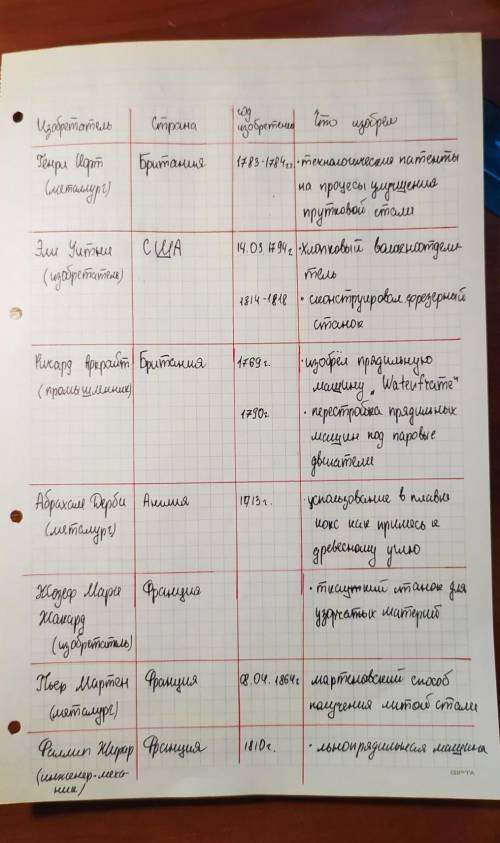 Изобретатель Страна год изобретения Что изобрёл
Генри Корт Британия 1783-1784гг. • технологические патенты
(металлург) на процесы улучшения
прутковой стали
Эли Уитни США 14.03.1794г • хлопковый волокноотдели-
(изобретатель) тель
1814-1818 • сконструировал фрезерный
станок
Рикард Аркрайт Британия 1769г. • изобрёл прядильную
(промышленник) машину „Waterframe"
1790г. • перестройка прядильных
машин под паровые
двигатели
Абрахам Дерби Англия 1713г. • использование в плавке
(металург) кокс как примесь к
древесному углю
Жозеф Мари Франция • ткацкий станок для
Жакард узорчатых материй
(изобретатель)
Пьер Мартен Франция 08.04.1864г • мартеновский способ
(металург) получения литой стали
Филлип Жирар Франция 1810г. • льнопрядильная машина
(инженер-меха-
ник)